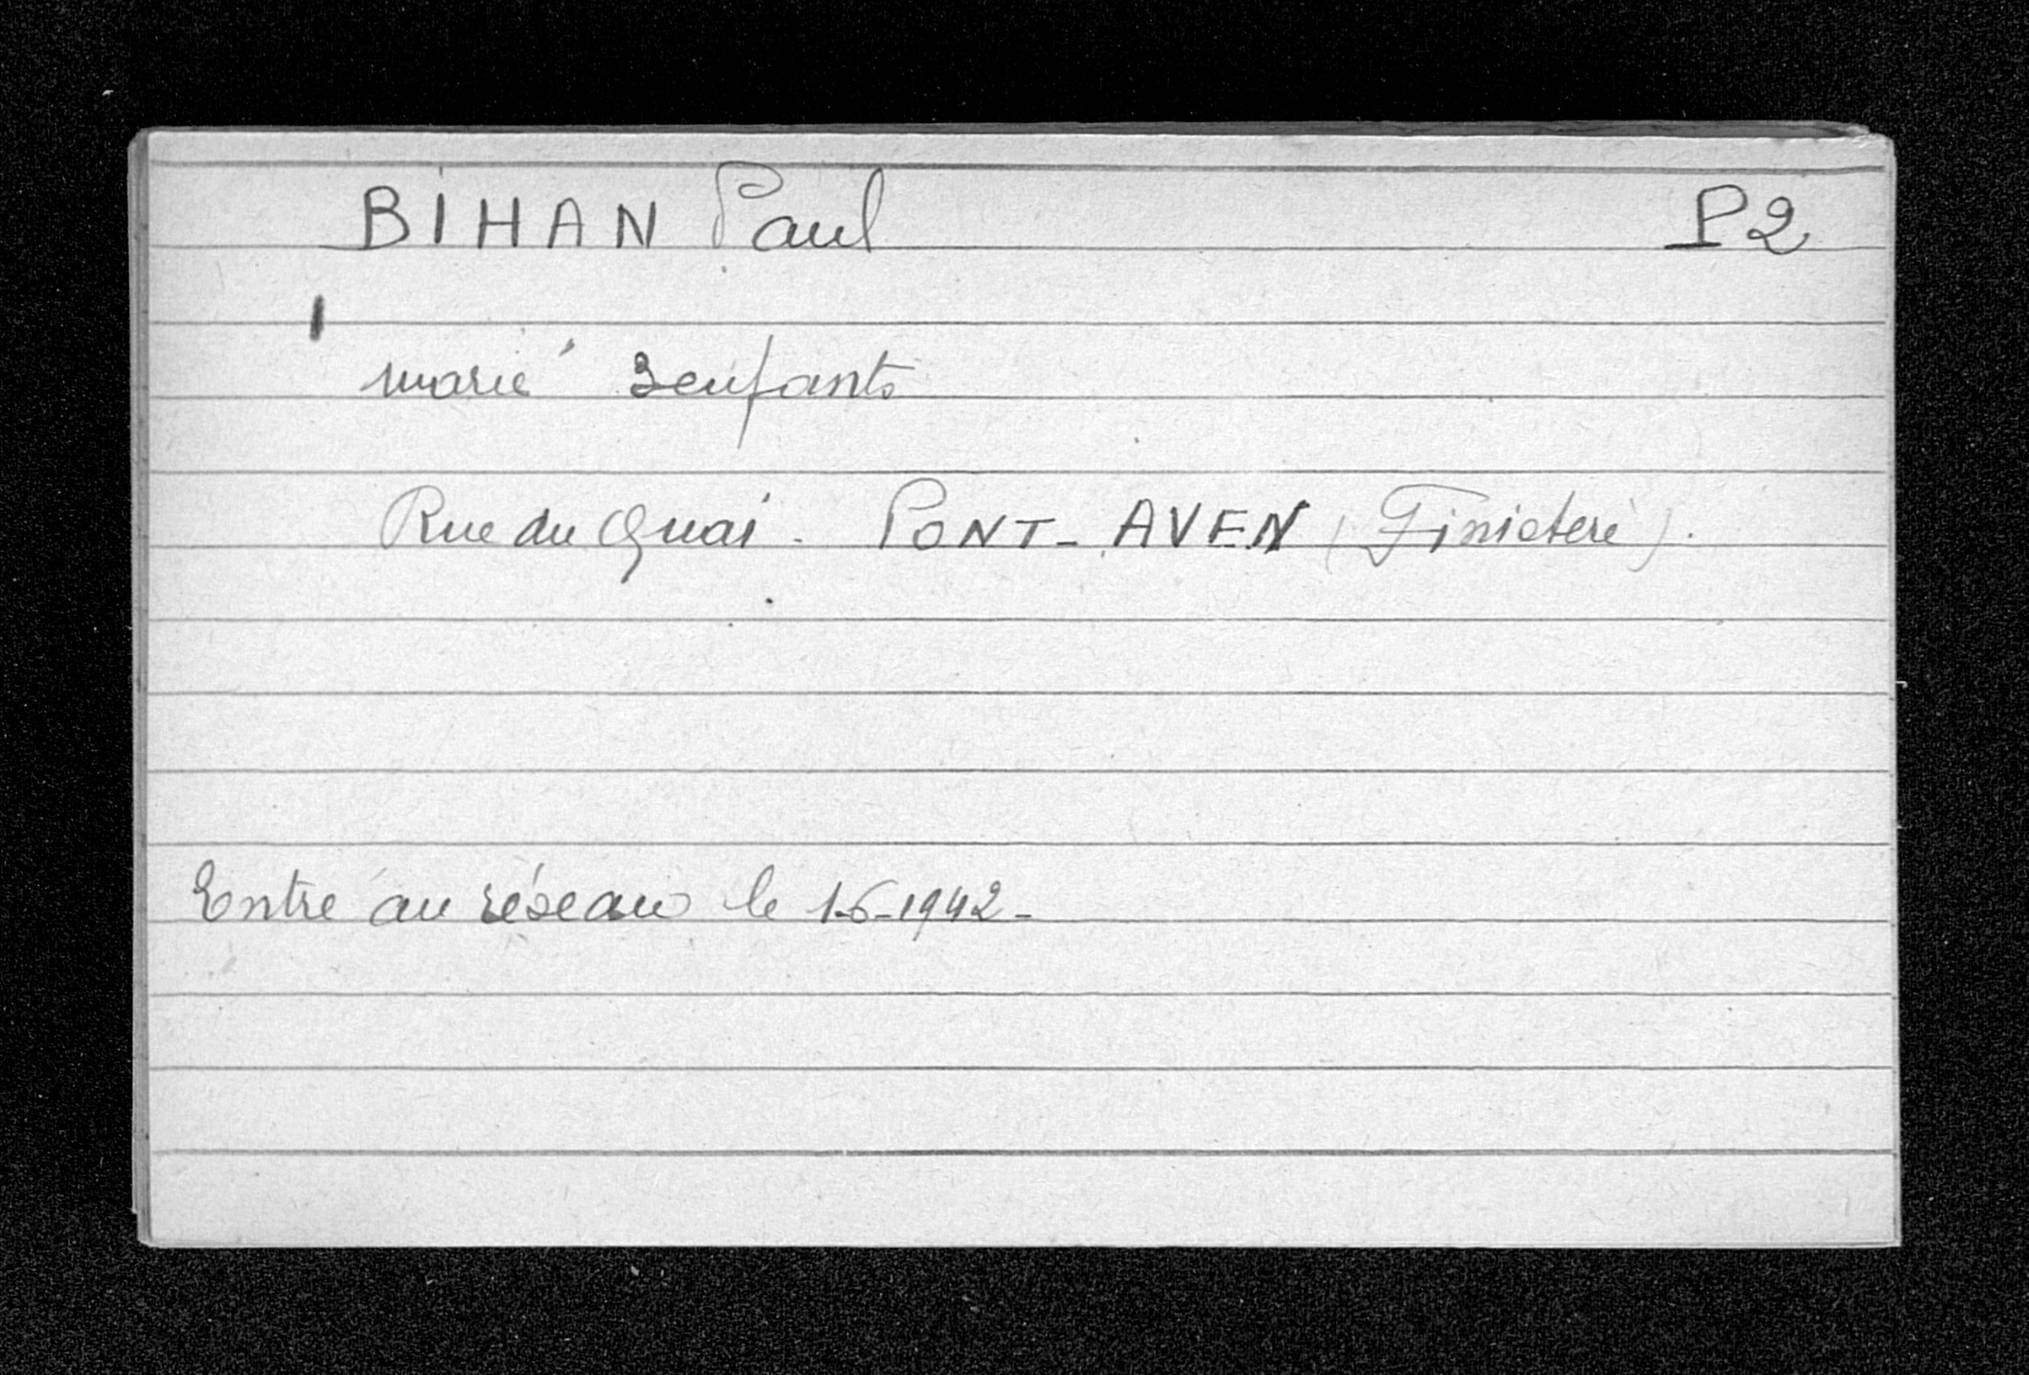 BIHAN Paul P2
marié 3 enfants
Rue du Quai - PONT-AVEN (Finistère).
Entré au réseau le 1-6-1942-